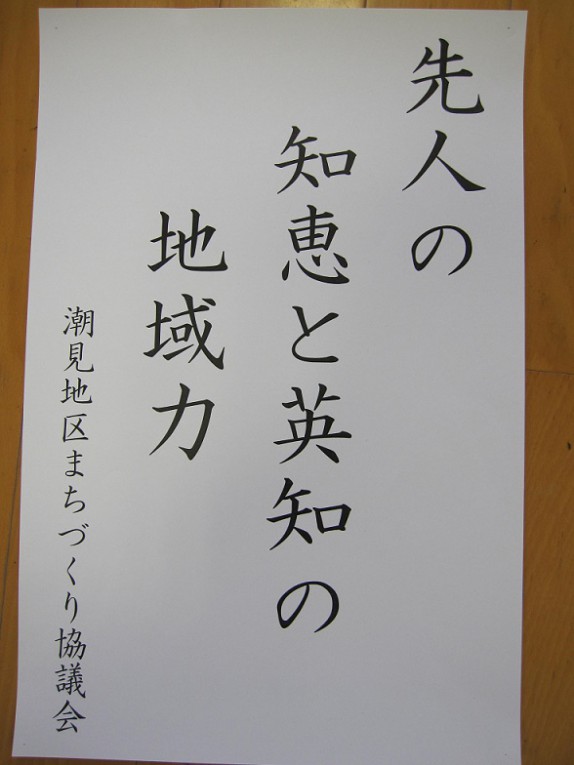 先人の
知恵と英知の
地域力
潮見地区まちづくり協議会